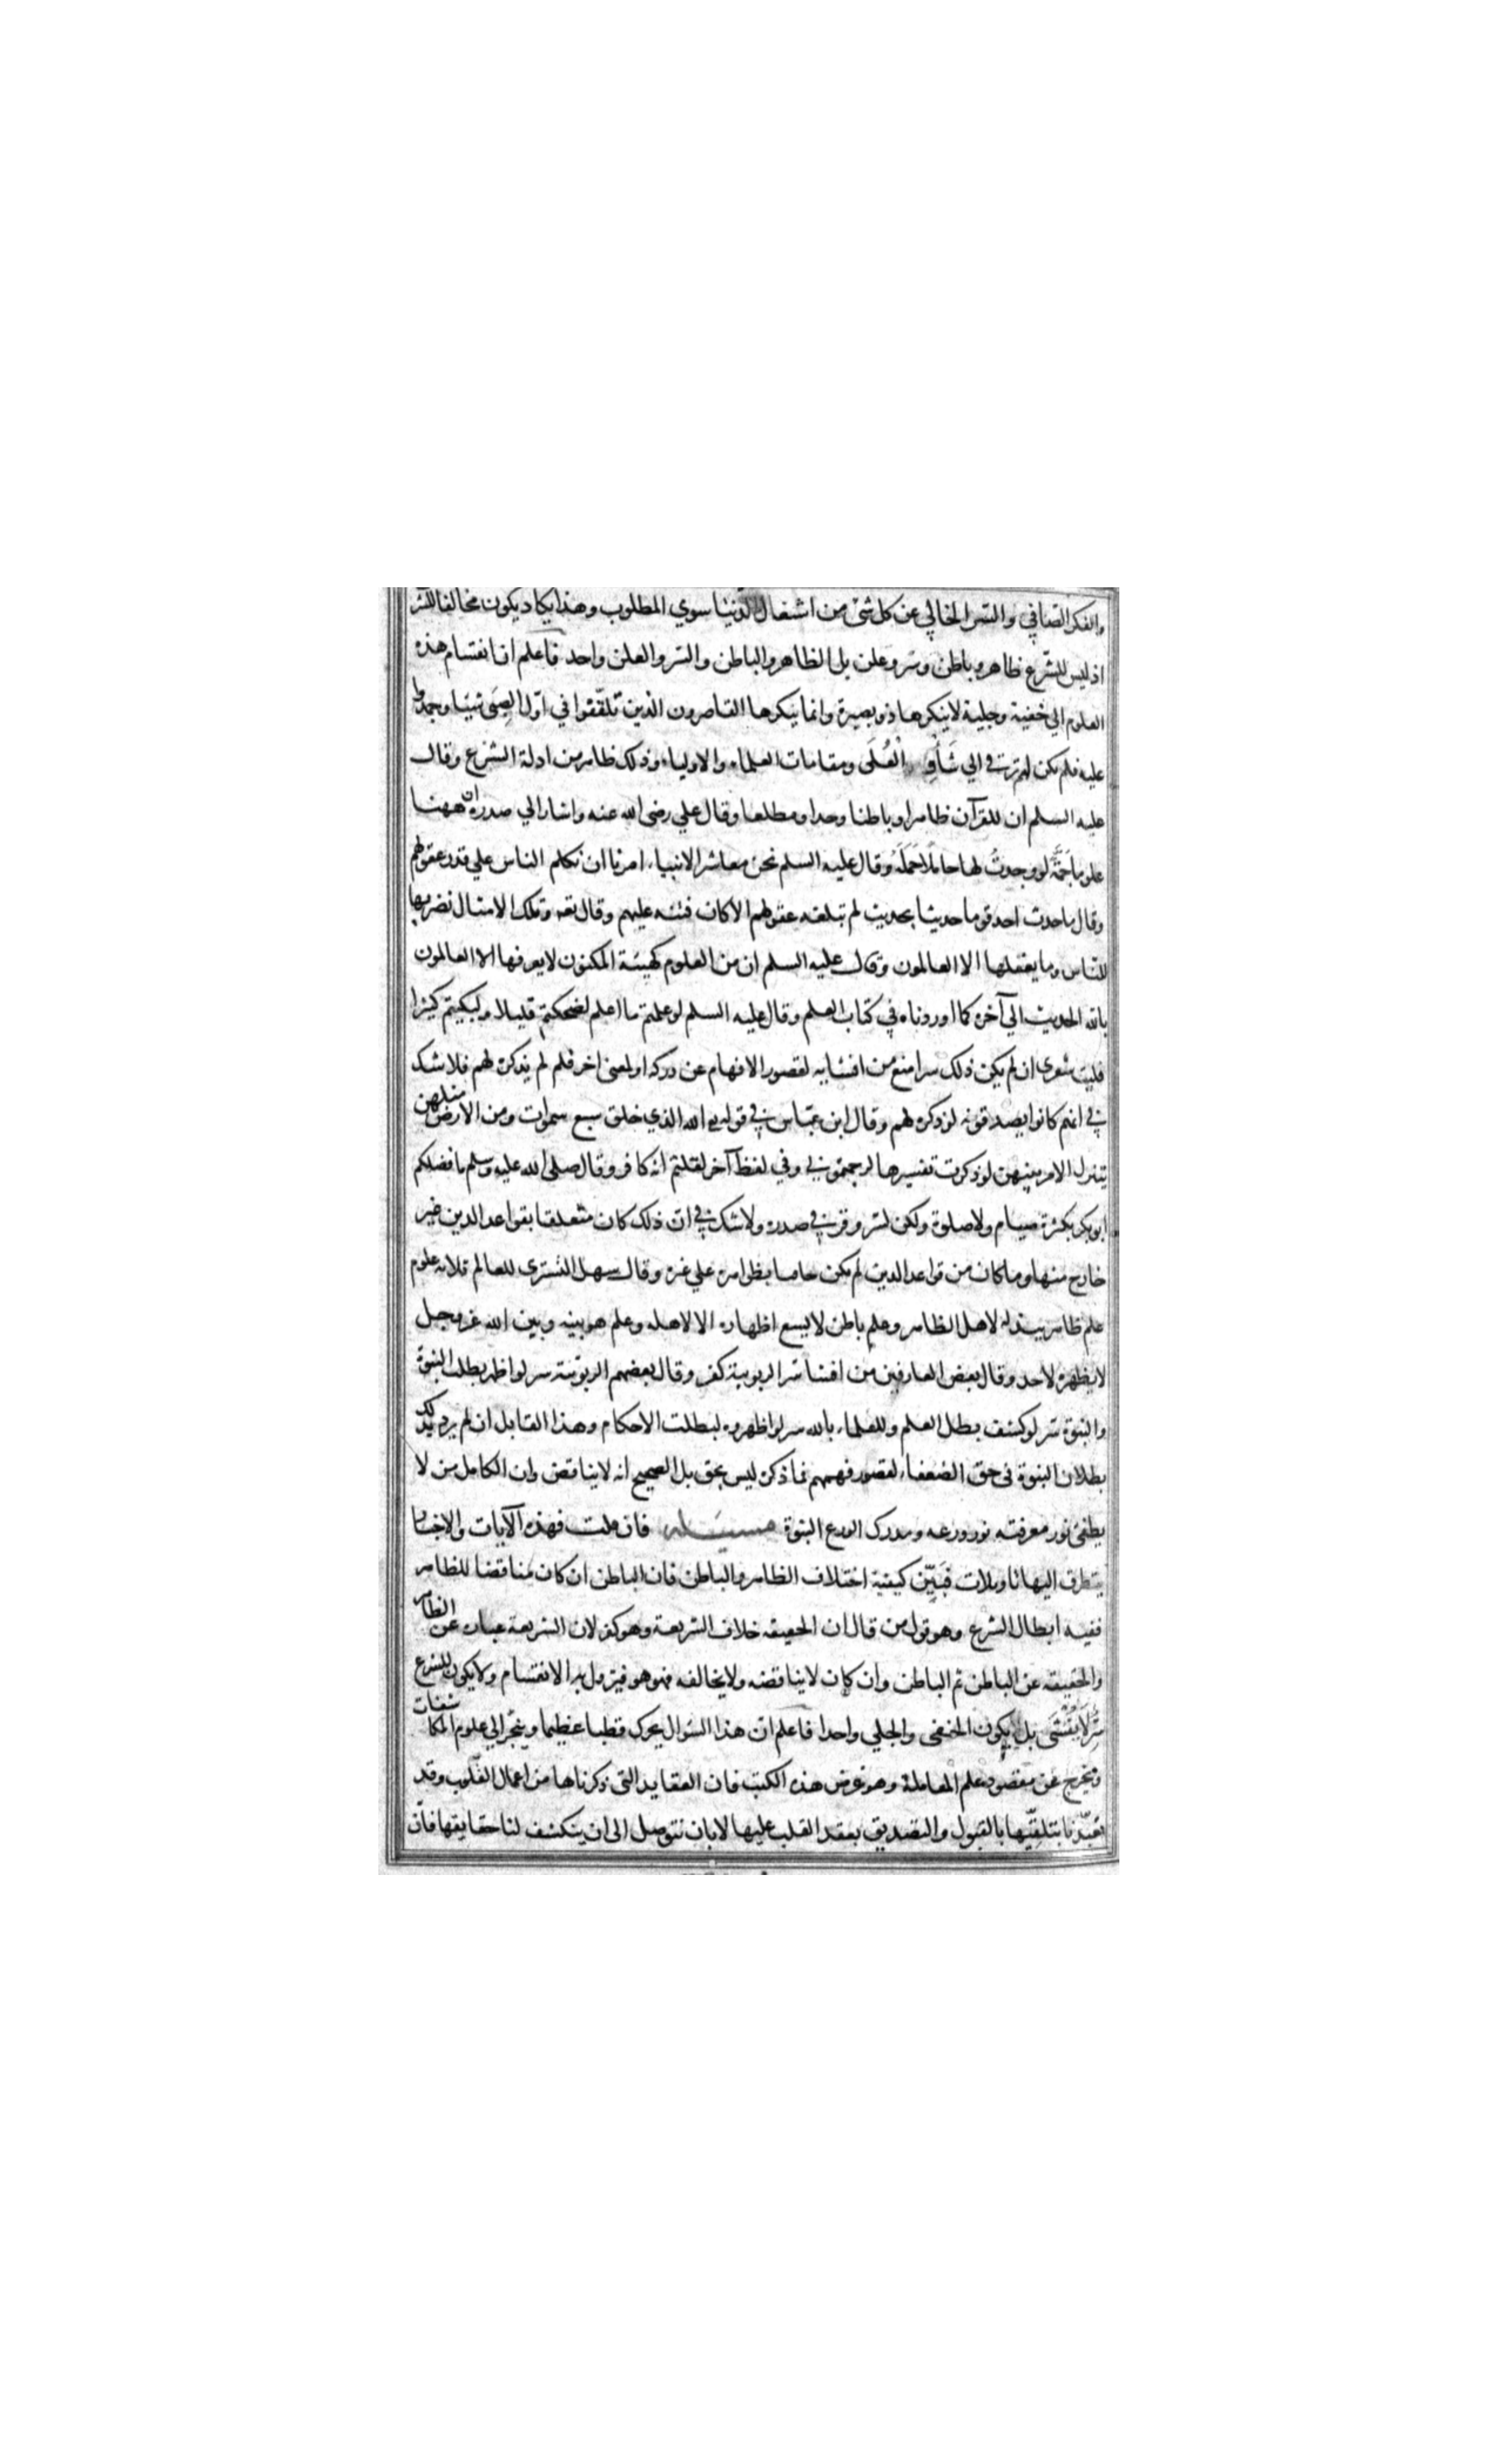 والفكر الصافي والسر الخالي عن كل شئ من اشغال الدنيا سوي المطلوب وهذا يكاد يكون مخالفا للشر
اذ ليس للشرع ظاهر وباطن وسر وعلن بل الظاهر والباطن والسر والعلن واحد فاعلم ان انقسام هذه
العلوم الي خفية وجلية لا ينكرها ذو بصيرة وانما ينكرها القاصرون الذين تلقفوا في اول الصبى شيئا وجمدوا
عليه فلم يكن لهم ترق الي شأو العُلَى ومقامات العلماء والاولياء وذلك ظاهر من ادلة الشرع وقال
عليه السلم ان للقرآن ظاهرا وباطنا وحدا ومطلعا وقال علي رضى الله عنه واشار الي صدره ان ههنا
علوما جَمَّةً لو وجدتُ لها حاملا حَمَلَهُ وقال عليه السلم نحن معاشر الانبياء امرنا ان نكلم الناس علي قدر عقولهم
وقال ما حدث احد قوما حديثا بحديث لم تبلغه عقولهم الا كان فتنه عليهم وقال تعه وتلك الامثال نضربها
للناس وما يعقلها الا العالمون وقال عليه السلم ان من العلوم كهيئة المكنون لا يعرفها الا العالمون
بالله الحديث الي آخره كما اوردناه في كتاب العلم وقال عليه السلم لو علمتم ما اعلم لضحكتم قليلا ولبكيتم كثيرا
فليت شعرى ان لم يكن ذلك سرا منع من افشايه لقصور الافهام عن دركه او لمعنى اخر فلم لم يذكره لهم فلا شك
في انهم كانوا يصدقونه لو ذكره لهم وقال ابن عباس في قوله الله الذي خلق سبع سموات ومن الارض مثلهن
يتنزل الامر بينهن لو ذكرت تفسيرها لرجمتموني وفي لفظ آخر لقلتم انه كافر وقال صلى الله عليه وسلم ما فضلكم
ابو بكر بكثرة صيام ولا صلوة ولكن لسر وقر في صدره ولا شك في ان ذلك كان متعلقا بقواعد الدين غير
خارج منها وما كان من قواعد الدين لم يكن خافيا بظواهره علي غيره وقال سهل التسترى للعالم ثلاثه علوم
علم ظاهر يبذله لاهل الظاهر وعلم باطن لا يسع اظهاره الا لاهله وعلم هو بينه وبين الله عز وجل
لا يظهره لاحد وقال بعض العارفين من افشا سر الربوبية كفر وقال بعضهم الربوبية سر لو اظهر بطلت النبوة
والنبوة سر لو كشف بطل العلم وللعلماء بالله سر لو اظهروه لبطلت الاحكام وهذا القايل ان لم يرد بذلك
بطلان النبوة فى حق الضعفاء لقصور فهمهم فما ذكره ليس بحق بل الصحيح انه لا يناقض وان الكامل من لا
يطفئ نور معرفته نور ورعه ومدرك الورع النبوة مسئلة فان قلت فهذه الآيات والاخبار
يتطرق اليها تاويلات فبَيِّن كيفية اختلاف الظاهر والباطن فان الباطن ان كان مناقضا للظاهر
ففيه ابطال الشرع وهو قول من قال ان الحقيقه خلاف الشريعه وهو كفر لان الشريعة عباره عن الظاهر
والحقيقه عن الباطن ثم الباطن وان كان لا يناقضه ولا يخالفه فهو هو فيزول به الانقسام ولا يكون للشرع
سِرٌّ لا يُفْشَى بل يكون الخفى والجلي واحدا فاعلم ان هذا السوال يحرك قطبا عظيما وينجر الي علوم المكاشفات
ويخرج عن مقصود علم المعاملة وهو غرض هذه الكتب فان العقايد التى ذكرناها من اعمال القلوب وقد
تعبّدنا بتلقِّيها بالقبول والتصديق بعقد القلب عليها لا بان نتوصل الى ان ينكشف لنا حقايقها فانّ